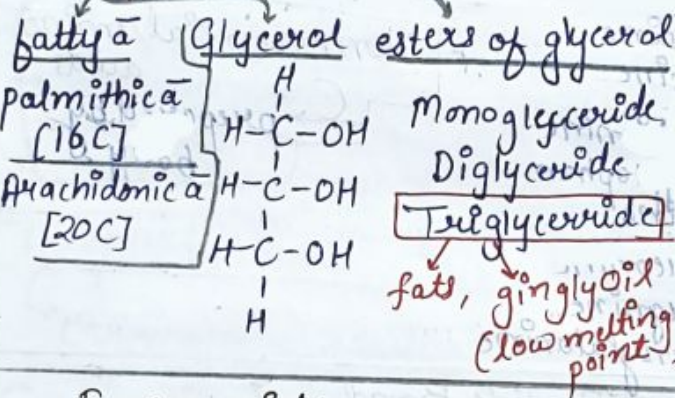 fatty ā
palmithic ā
[16C]
Arachidonic ā
[20C]
Glycerol
H
H-C-OH
H-C-OH
H-C-OH
H
esters of glycerol
Monoglyceride
Diglyceride
Triglycerride
fats, gingly Oil
(low melting
point